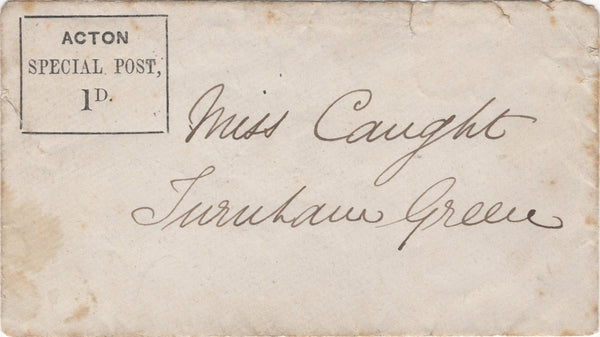 ACTON
SPECIAL POST,
1D.
Miss Caught
Turnham Green